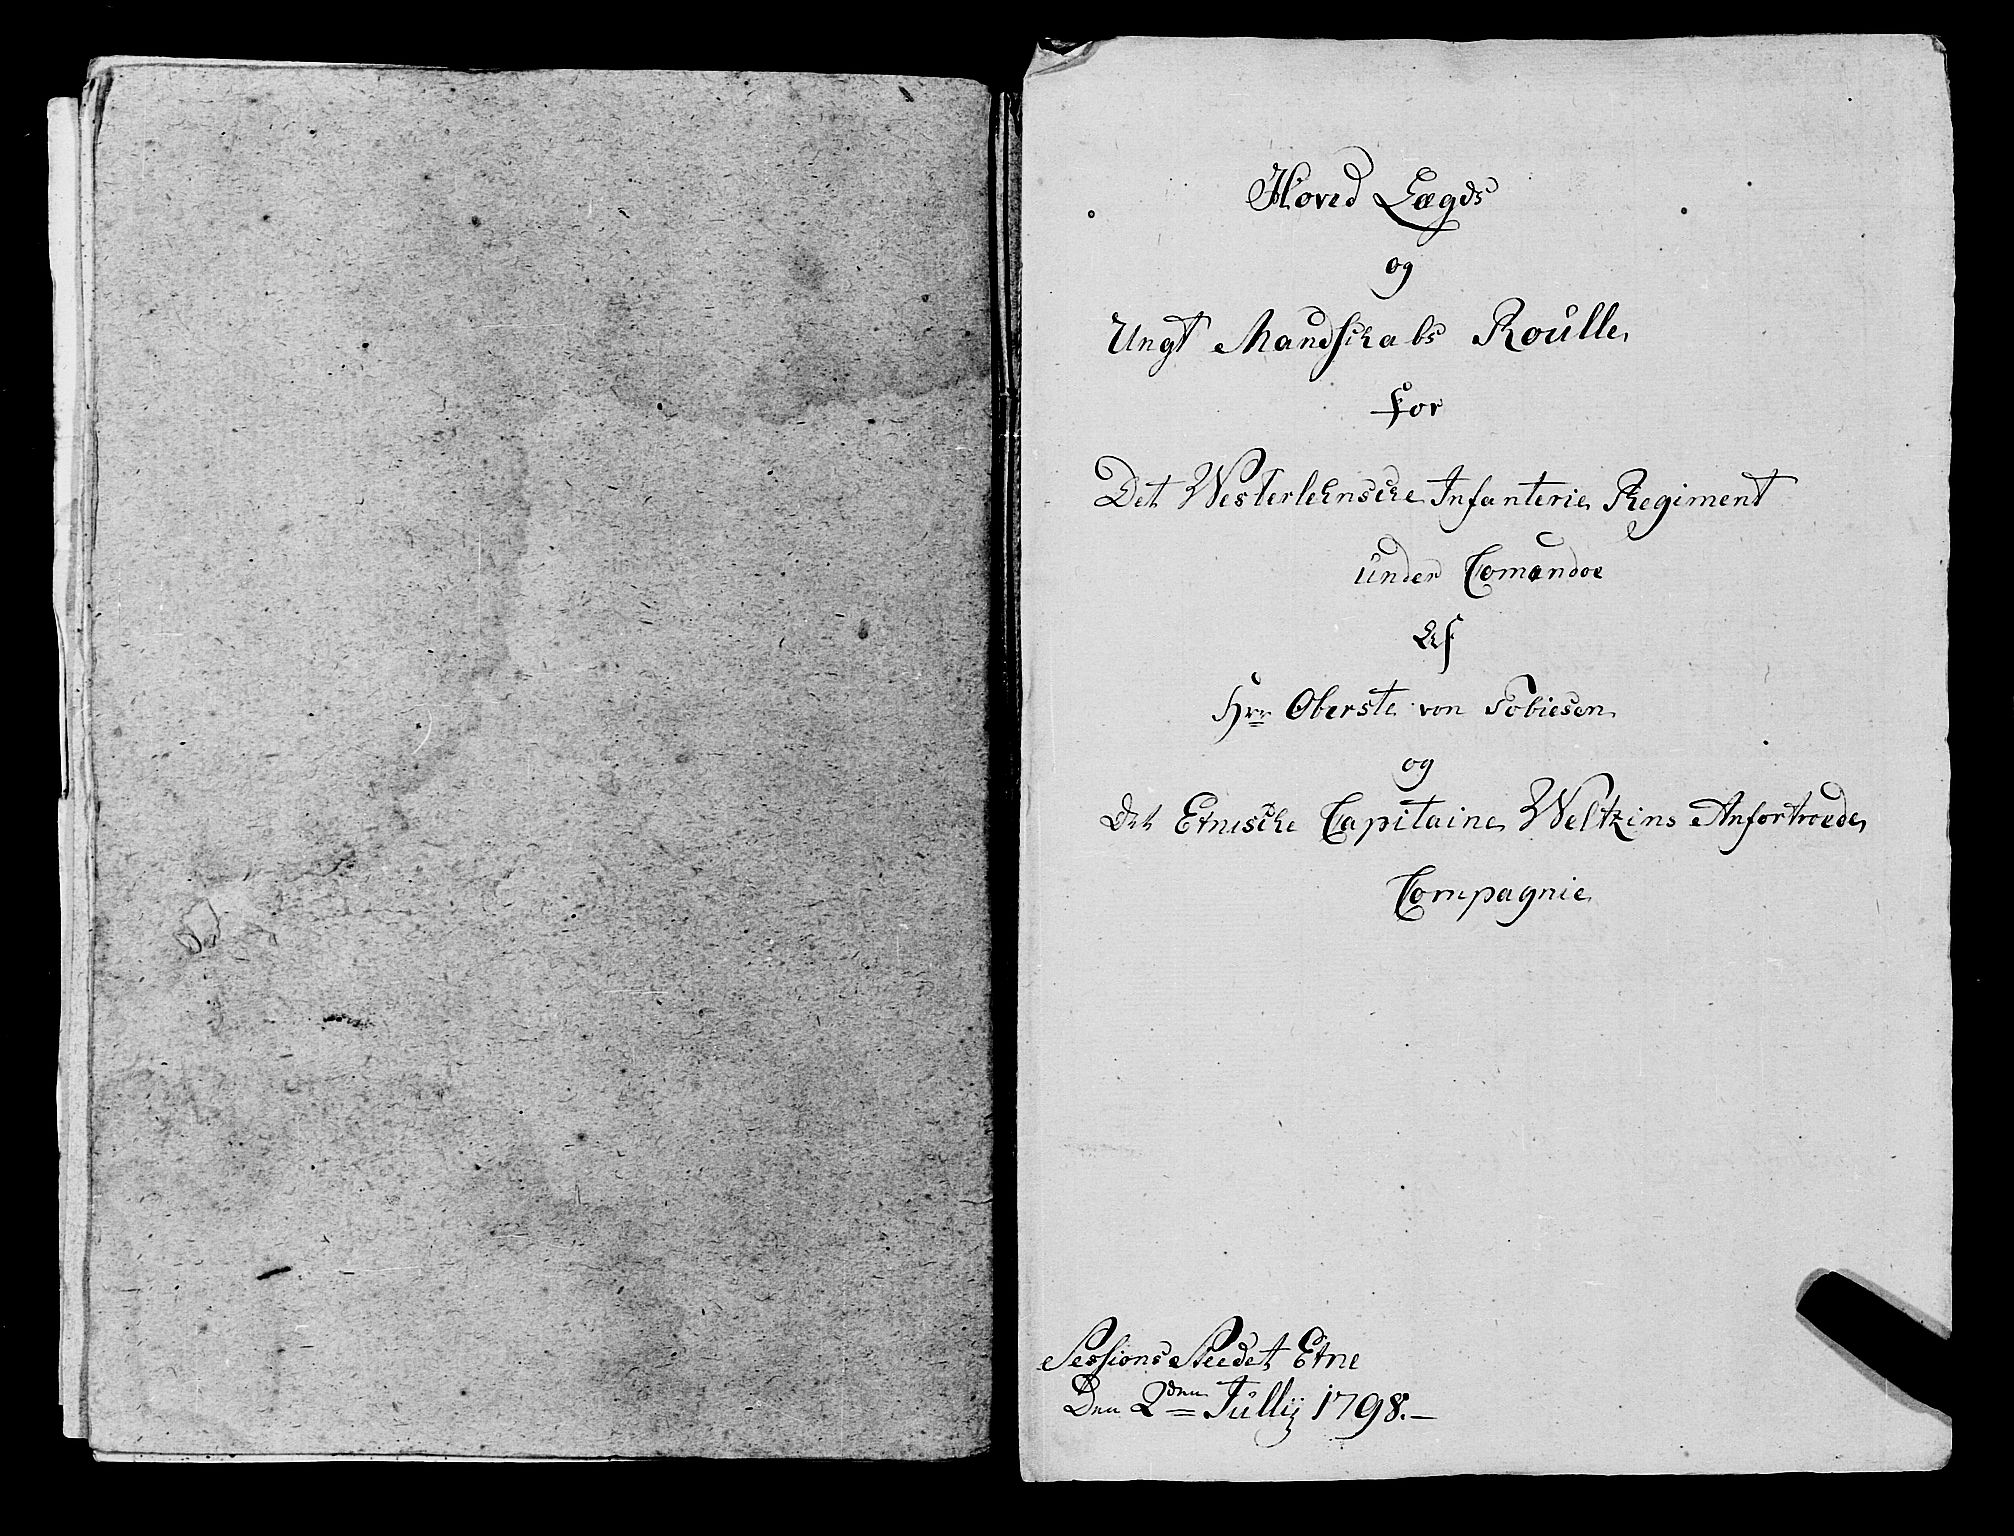 Hoved Lægds
og
Ungt Mandskabs Roulle
for
Det Westerlehnske Infanterie Regiment
under Comandoe
Af
Hrr Oberste von Tobiesen
og
Det Etniske Capitaine Weltzins Anfortroede
Compagnie
Sessions Steedet Etne
Den 2den Jully 1798.